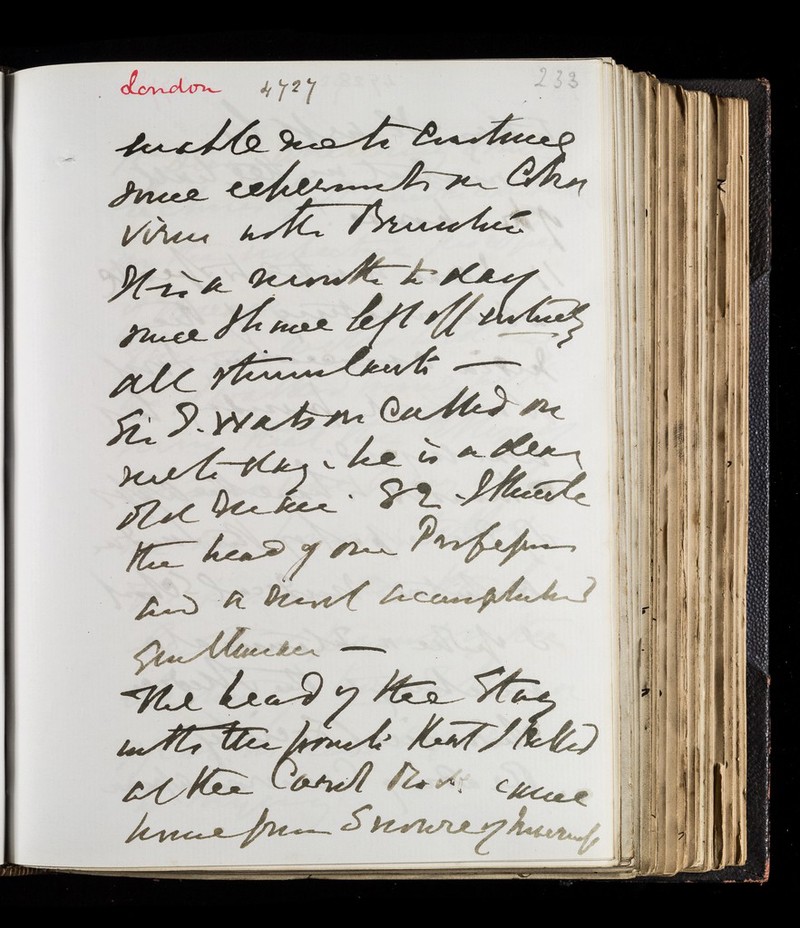 London 4727 233
enable me to continue
some experiments on Cobra
virus with Brunton
It is a month to day
since I have left off entirely
all stimulants —
Sir T. Watson called on
me to day. he is a dear
old 82. I think
the head of our Profession
and a most accomplished
Gentleman —
The head of the Stag
with the points that I killed
at the came
home from Snowie of Inverness